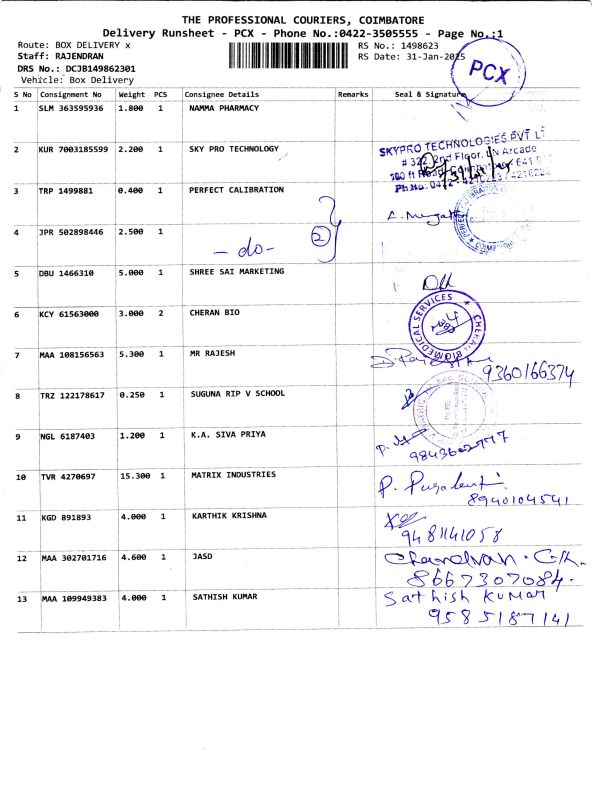 THE PROFESSIONAL COURIERS, COIMBATORE
Delivery Runsheet - PCX - Phone No.:0422-3505555 - Page No.:1
Route: BOX DELIVERY x
RS No.: 1498623
Staff: RAJENDRAN
RS Date: 31-Jan-2025
DRS No.: DCJB149862301
Vehicle: Box Delivery
PCX
S No Consignment No Weight PCS Consignee Details Remarks Seal & Signature
1 SLM 363595936 1.800 1 NAMMA PHARMACY
2 KUR 7003185599 2.200 1 SKY PRO TECHNOLOGY
SKYPRO TECHNOLOGIES PVT LT
# 322, 2nd Floor, LN Arcade
100 ft Road, Coimbatore 641
Ph.No: 0422 - 4216223 / 4216224
3 TRP 1499881 0.400 1 PERFECT CALIBRATION
4 JPR 502898446 2.500 1
- do - 2
5 DBU 1466310 5.000 1 SHREE SAI MARKETING
6 KCY 61563000 3.000 2 CHERAN BIO
CHERAN BIOMEDICAL SERVICES
7 MAA 108156563 5.300 1 MR RAJESH
9360166374
8 TRZ 122178617 0.250 1 SUGUNA RIP V SCHOOL
9 NGL 6187403 1.200 1 K.A. SIVA PRIYA
9843602777
10 TVR 4270697 15.300 1 MATRIX INDUSTRIES
8940104541
11 KGD 891893 4.000 1 KARTHIK KRISHNA
9481141058
12 MAA 302701716 4.600 1 JASD
8667307084.
13 MAA 109949383 4.000 1 SATHISH KUMAR
Sathish KUMAR
9585187141